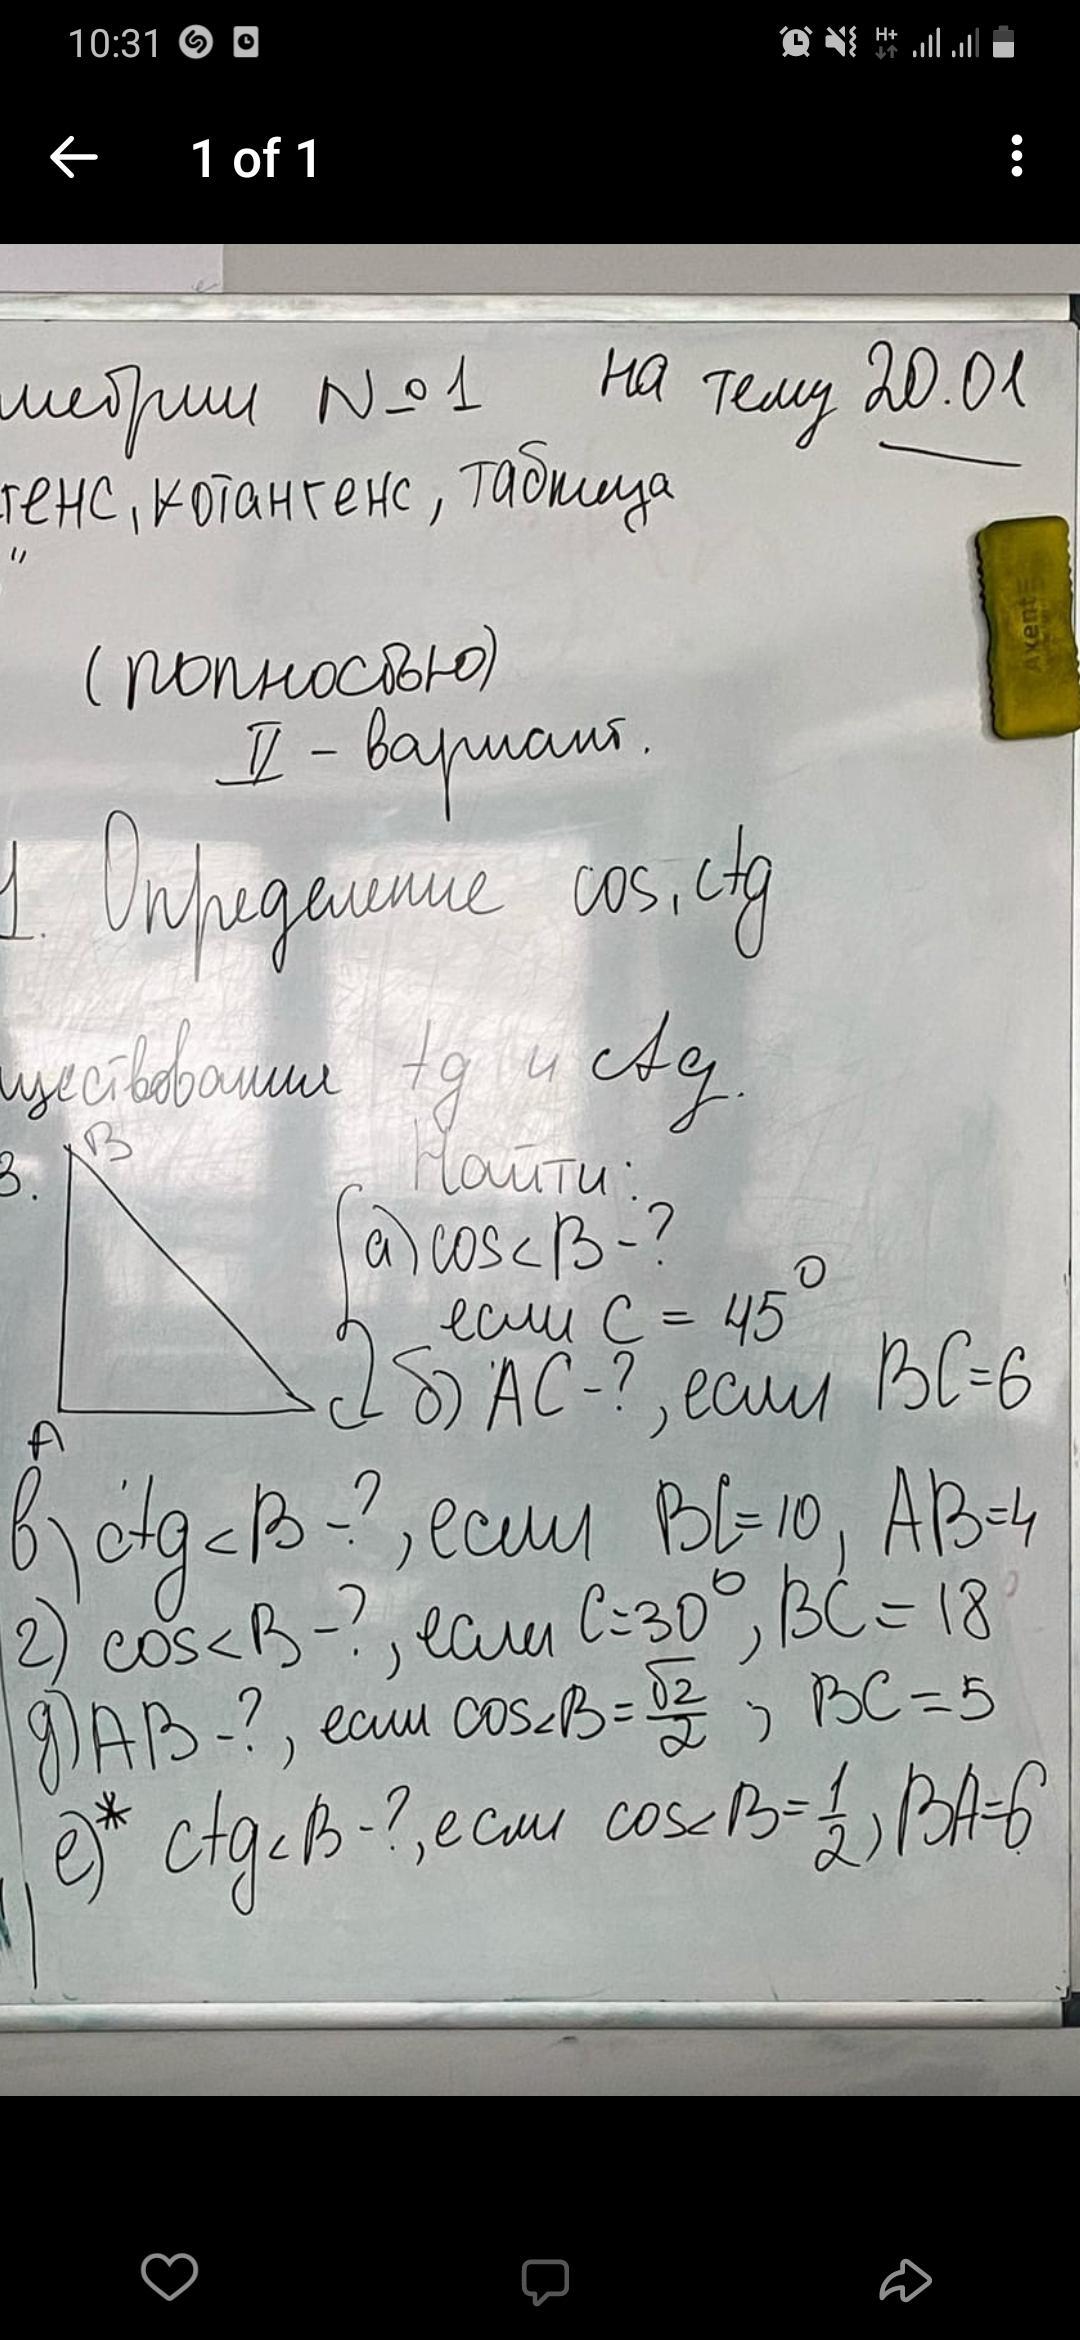 10:31 H+
1 of 1
метрии №1 на тему 20.01
генс, котангенс, таблица
"
(полностью)
II - вариант.
1. Определение cos, ctg
ществования tg и ctg.
B
3. Найти:
а) cos<B-?
если C = 45°
C б) AC-?, если BC=6
A
в) ctg<B-?, если BC=10, AB=4
г) cos<B-?, если C=30°, BC=18
д) AB-?, если cos<B=√2/2, BC=5
е)* ctg<B-?, если cos<B=1/2, BA=6
Axent